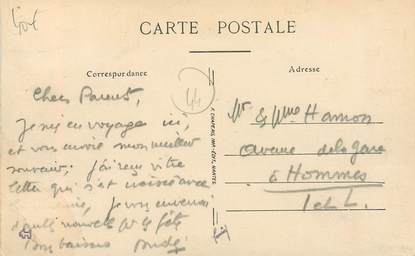 CARTE POSTALE
Correspondance
Adresse
44
Chers Parents,
Je suis en voyage ici,
et vous envoie mon meilleur
souvenir. J'ai reçu votre
lettre qui s'est croisée avec
la mienne, je vous enverrai
nouvelle
Bons baisers
Mr & Mme Hamon
avenue de la gare
à Hommes
I et L.